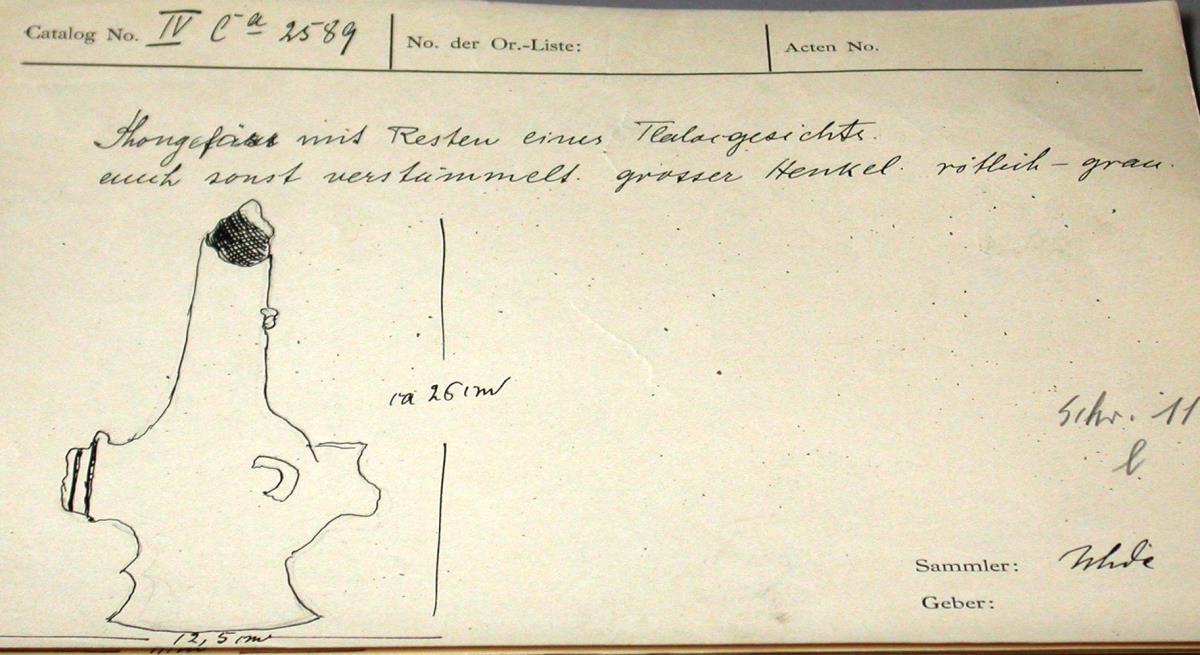 Catalog No. IV Ca 2589 No. der Or.-Liste: Acten No.
Thongefäss mit Resten eines Tlalocgesichts.
auch sonst verstümmelt. grosser Henkel. rötlich - grau.
ca 26 cm
Schr. 11
l
Sammler: Uhde
Geber:
12,5 cm